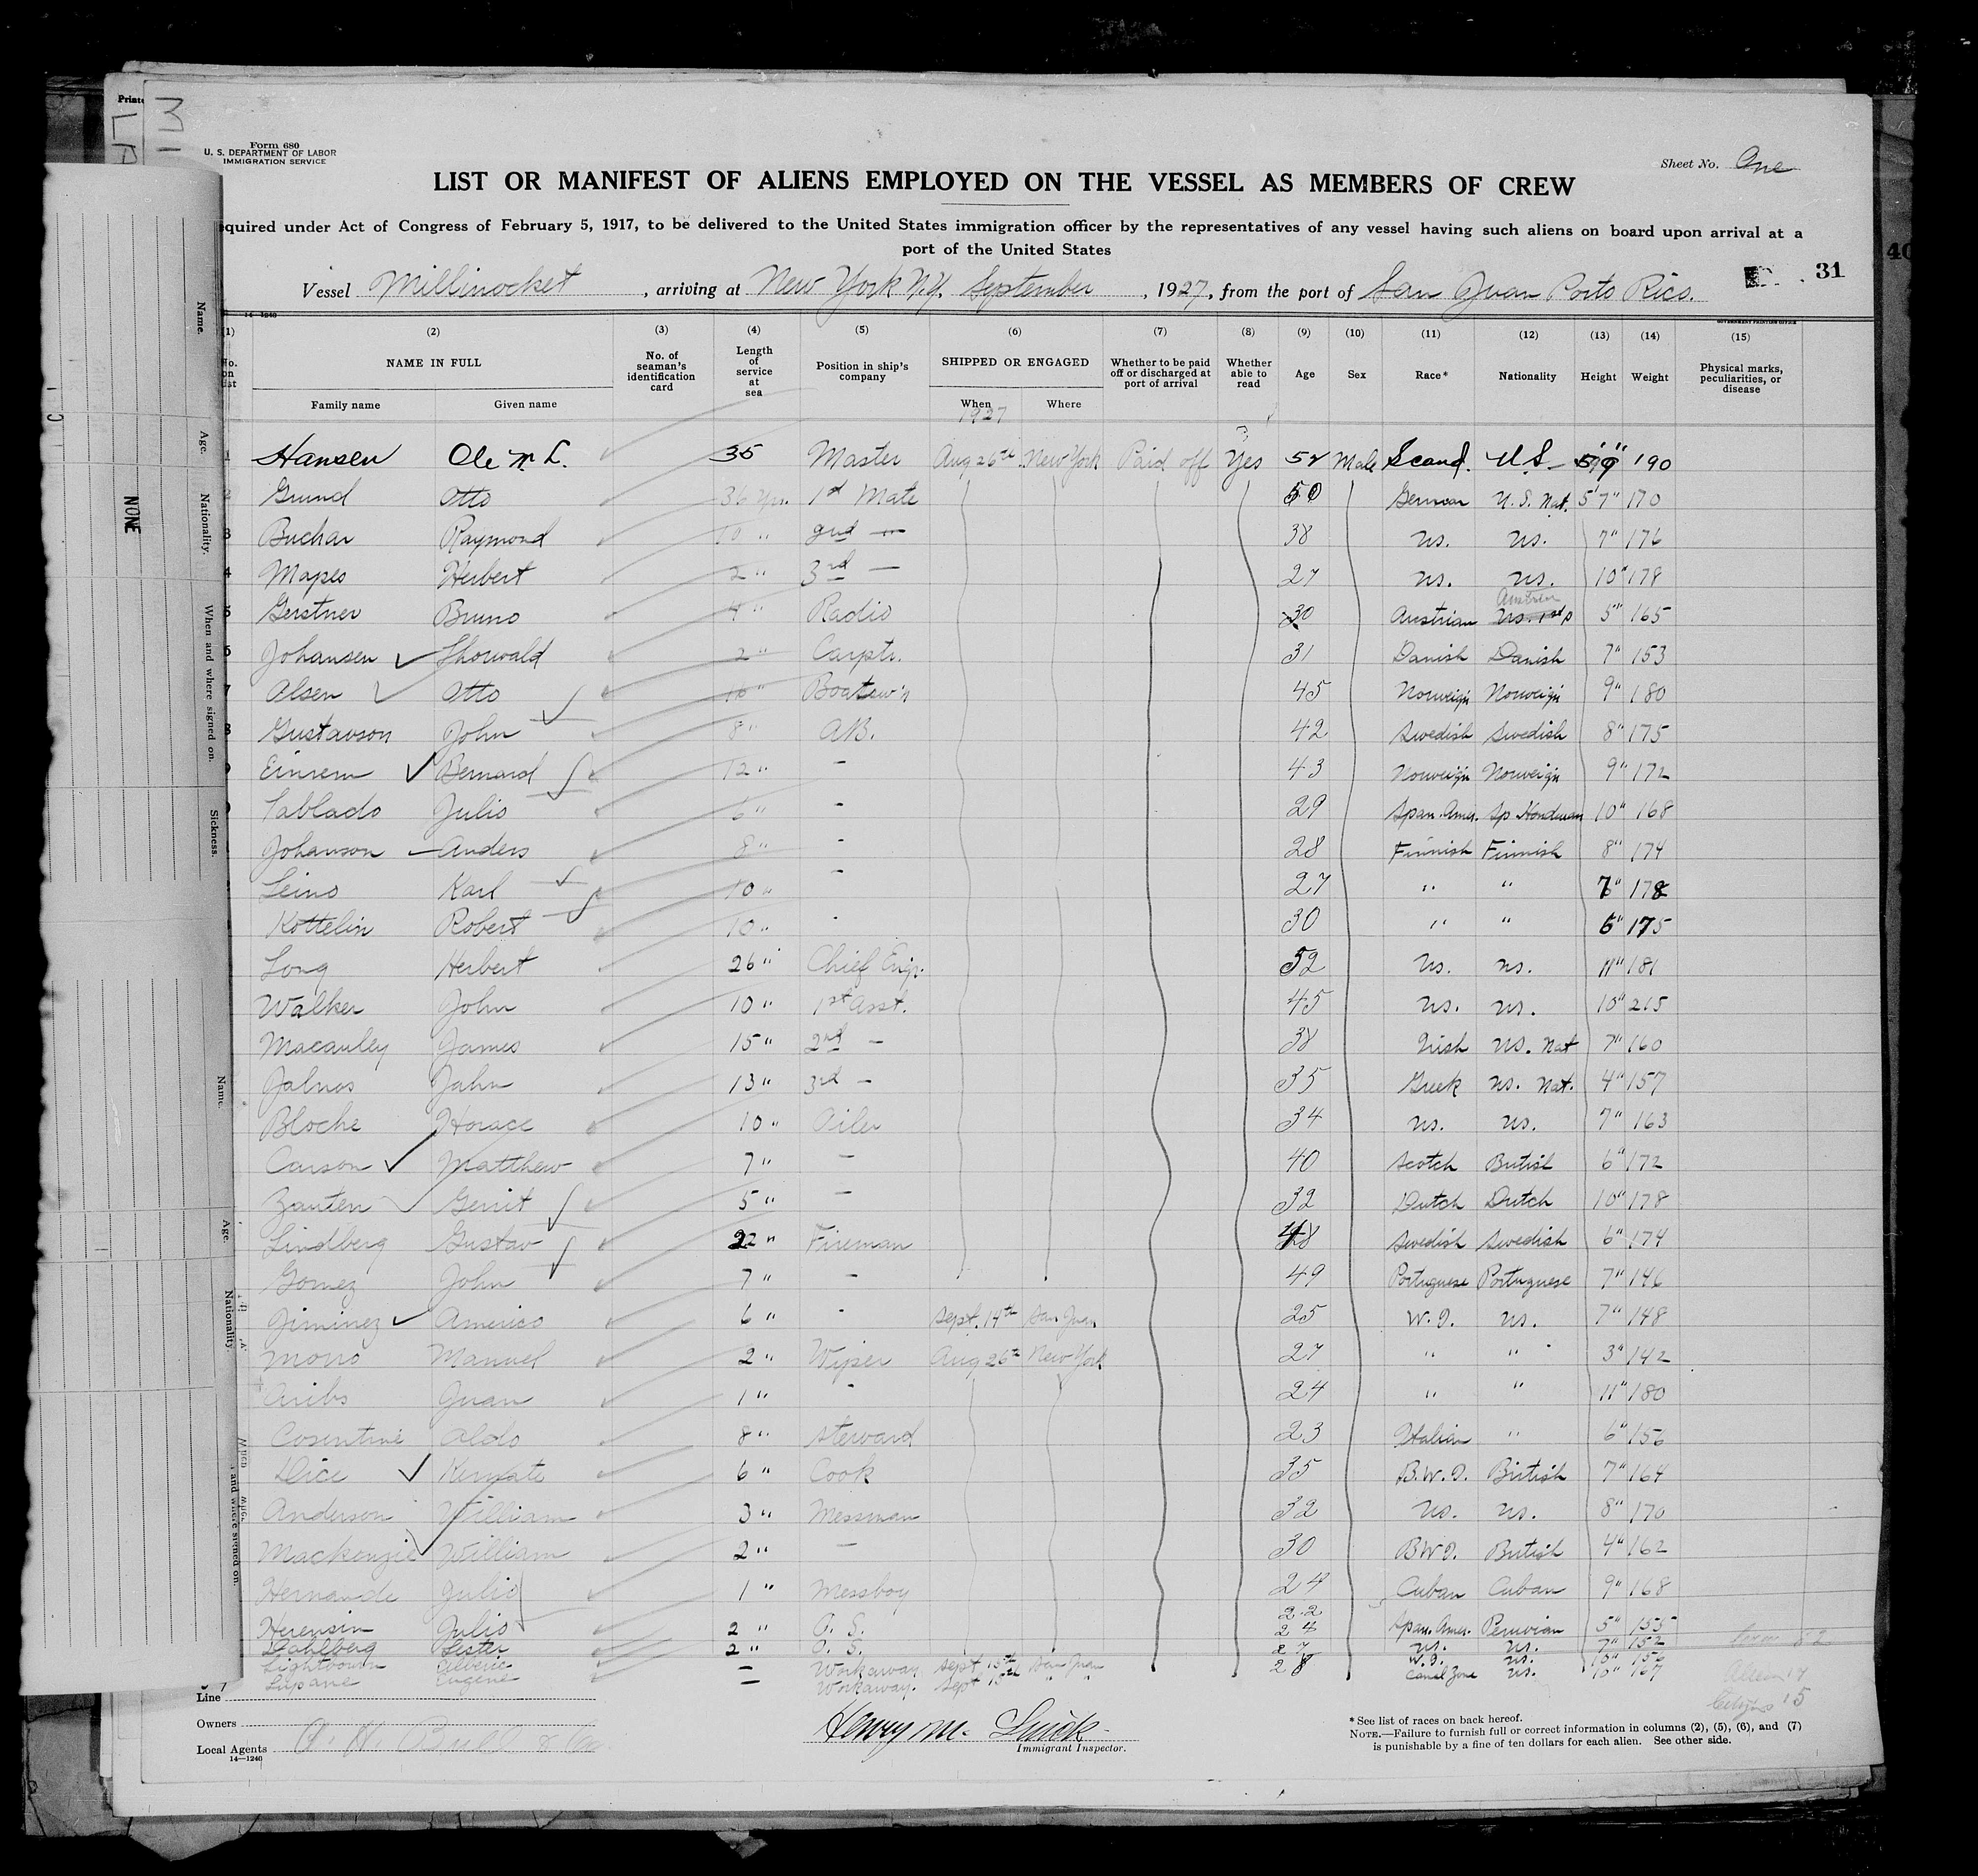 Form 680
U. S. DEPARTMENT OF LABOR
IMMIGRATION SERVICE
Sheet No. One
LIST OR MANIFEST OF ALIENS EMPLOYED ON THE VESSEL AS MEMBERS OF CREW
quired under Act of Congress of February 5, 1917, to be delivered to the United States immigration officer by the representatives of any vessel having such aliens on board upon arrival at a
port of the United States
31
Vessel Millinocket, arriving at New York N.Y. September, 1927, from the port of San Juan Porto Rico.
(1) (2) (3) (4) (5) (6) (7) (8) (9) (10) (11) (12) (13) (14) (15)
NAME IN FULL
Family name Given name
No. of seaman's identification card
Length of service at sea
Position in ship's company
SHIPPED OR ENGAGED
When Where
Whether to be paid off or discharged at port of arrival
Whether able to read
Age Sex Race* Nationality Height Weight
Physical marks, peculiarities, or disease
1927
Hansen Ole M L. 35 Master Aug 26th New York Paid off Yes 52 Male Scand. U.S. 5'9" 190
Grund Otto 36 Yrs. 1st Mate 50 German U.S. Nat. 5'7" 170
Buchar Raymond 10 " 2nd — 38 US. US. 7" 176
Mapes Herbert 2 " 3rd — 27 US. US. 10" 178
Gerstner Bruno 4 " Radio 30 Austrian Austrian 5" 165
Johansen Thorwald 2 " Carptr. 31 Danish Danish 7" 153
Olsen Otto 16 " Boatsw'n 45 Norweig'n Norweig'n 9" 180
Gustavson John 8 " AB. 42 Swedish Swedish 8" 175
Einrem Bernard 12 " - 43 Norweig'n Norweig'n 9" 172
Tablado Julio 6 " - 29 Span. Amer. Sp Honduran 10" 168
Johanson Anders 8 " - 28 Finnish Finnish 8" 174
Leino Karl 10 " - 27 " " 178
Kottelin Robert 10 " - 30 " " 6" 175
Long Herbert 26 " Chief Engr. 52 US. US. 11" 181
Walker John 10 " 1st Asst. 45 US. US. 10" 215
Macauley James 15 " 2nd — 38 Irish US. Nat 7" 160
Jalnos John 13 " 3rd — 35 Greek US. Nat. 4" 157
Bloche Horace 10 " Oiler 34 US. US. 7" 163
Carson Matthew 7 " — 40 Scotch British 6" 172
Zanten Gerrit 5 " — 32 Dutch Dutch 10" 178
Lindberg Gustav 22 " Fireman 48 Swedish Swedish 6" 174
Gomez John 7 " — 49 Portuguese Portuguese 7" 146
Jiminez Americo 6 " - Sept. 14th San Juan 25 W.I. US. 7" 148
Moro Manuel 2 " Wiper Aug 26th New York 27 " " 3" 142
Juan 1 " - 24 " " 11" 180
Cosentine Aldo 8 " Steward 23 Italian " 6" 156
Dice 6 " Cook 35 B.W.I. British 7" 164
Anderson William 3 " Messman 32 US. US. 8" 170
Mackenzie William 2 " — 30 BWI. British 4" 162
Hernande Julio 1 " Messboy 24 Cuban Cuban 9" 168
Herensin Julio 2 " O. S. 22 Span. Amer. Peruvian 5" 155
Dahlberg Lester 2 " O. S. 24 US. US. 7" 152
Lightbourn — Workaway Sept 15th San Juan 27 W.I. US. 10" 156
Lupane Eugene — Workaway. Sept 15th " " 28 Canal Zone US. 10" 167
Line
Owners
Local Agents A. H. Bull & Co
14—1240
Henry M.
Immigrant Inspector.
Aliens 17
Citizens 15
* See list of races on back hereof.
NOTE.—Failure to furnish full or correct information in columns (2), (5), (6), and (7)
is punishable by a fine of ten dollars for each alien. See other side.
Name.
Age.
Nationality.
When and where signed on.
Sickness.
NONE
Name.
Age.
Nationality.